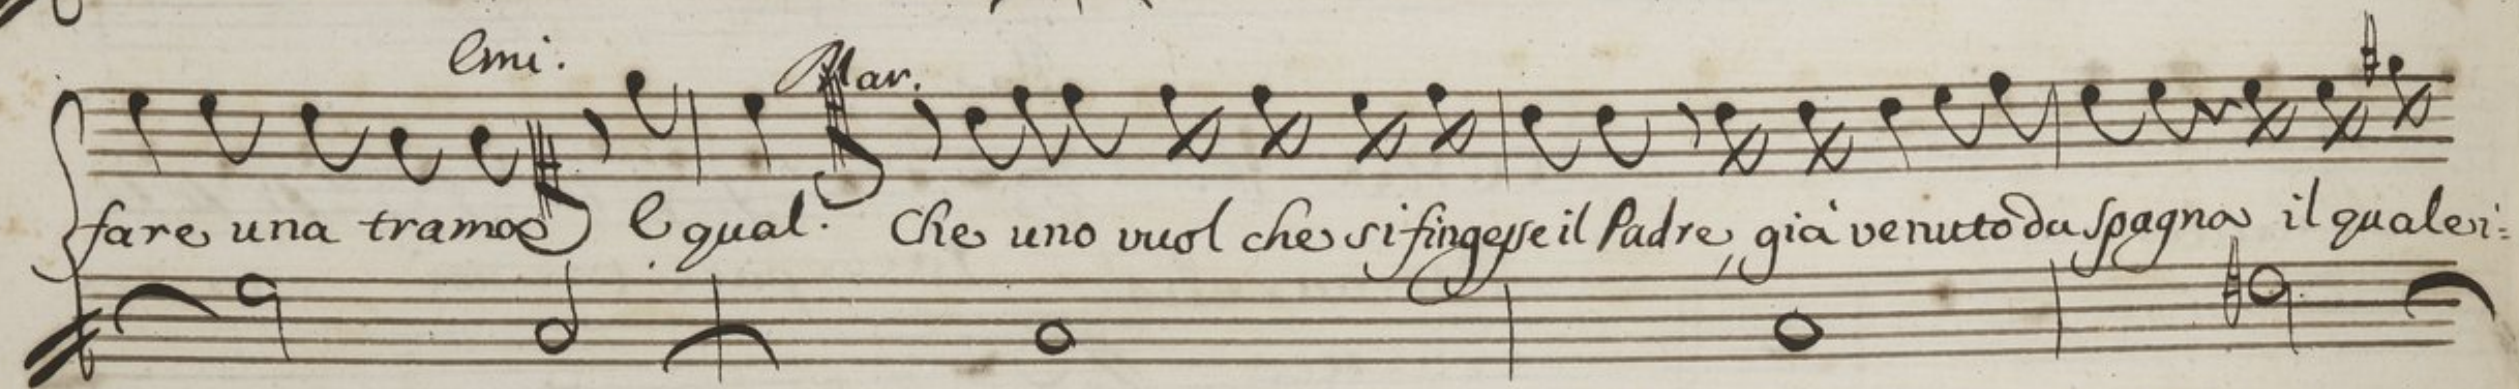 Emi. Mar.
fare una trama E qual. Che uno vuol che si fingesse il Padre, già venuto da Spagna il quale ri=